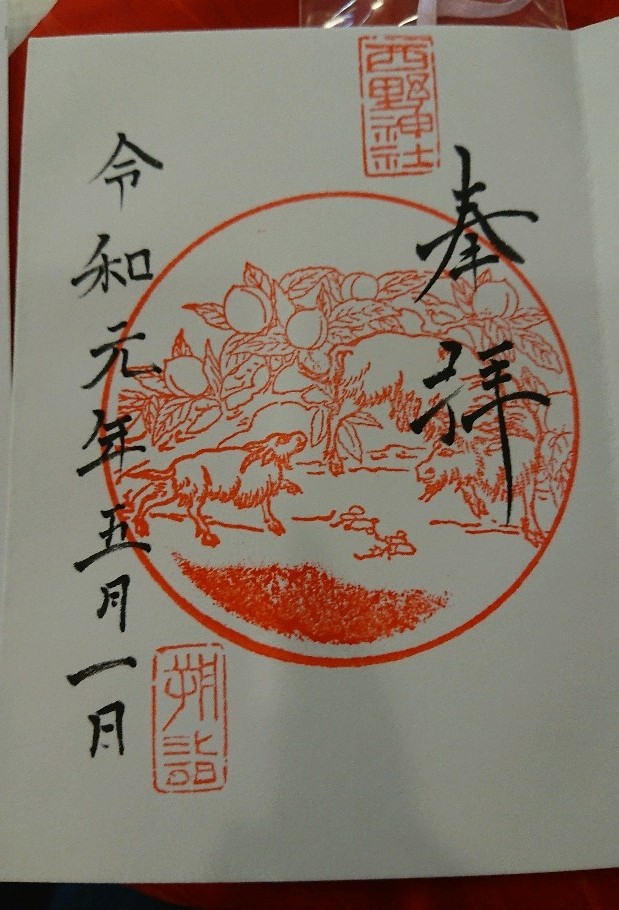 西野神社
奉拝
令和元年五月一日
朔詣